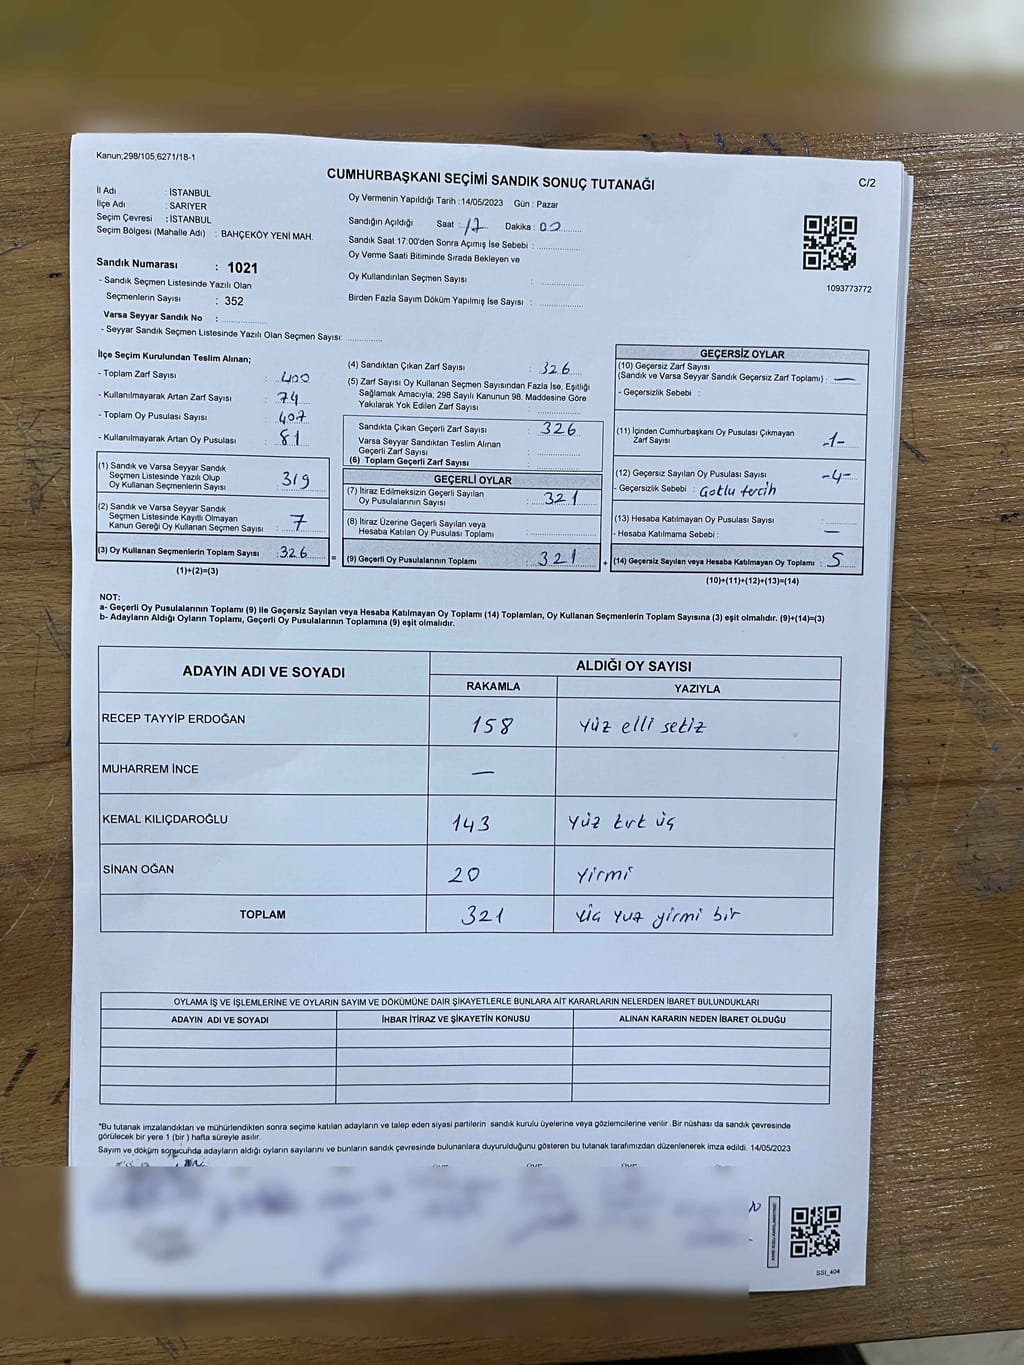 Kanun;298/105,6271/18-1
CUMHURBAŞKANI SEÇİMİ SANDIK SONUÇ TUTANAĞI
C/2
İl Adı : İSTANBUL
İlçe Adı : SARIYER
Seçim Çevresi : İSTANBUL
Seçim Bölgesi (Mahalle Adı) : BAHÇEKÖY YENİ MAH.
Sandık Numarası : 1021
- Sandık Seçmen Listesinde Yazılı Olan
Seçmenlerin Sayısı : 352
Varsa Seyyar Sandık No :
- Seyyar Sandık Seçmen Listesinde Yazılı Olan Seçmen Sayısı:
Oy Vermenin Yapıldığı Tarih : 14/05/2023 Gün : Pazar
Sandığın Açıldığı Saat : 17 Dakika : 00
Sandık Saat 17:00'den Sonra Açımış İse Sebebi :
Oy Verme Saati Bitiminde Sırada Bekleyen ve
Oy Kullandırılan Seçmen Sayısı :
Birden Fazla Sayım Döküm Yapılmış İse Sayısı :
1093773772
İlçe Seçim Kurulundan Teslim Alınan;
- Toplam Zarf Sayısı : 400
- Kullanılmayarak Artan Zarf Sayısı : 74
- Toplam Oy Pusulası Sayısı : 407
- Kullanılmayarak Artan Oy Pusulası : 81
(1) Sandık ve Varsa Seyyar Sandık
Seçmen Listesinde Yazılı Olup
Oy Kullanan Seçmenlerin Sayısı : 319
(2) Sandık ve Varsa Seyyar Sandık
Seçmen Listesinde Kayıtlı Olmayan
Kanun Gereği Oy Kullanan Seçmen Sayısı : 7
(3) Oy Kullanan Seçmenlerin Toplam Sayısı : 326
(1)+(2)=(3)
(4) Sandıktan Çıkan Zarf Sayısı : 326
(5) Zarf Sayısı Oy Kullanan Seçmen Sayısından Fazla İse, Eşitliği
Sağlamak Amacıyla, 298 Sayılı Kanunun 98. Maddesine Göre
Yakılarak Yok Edilen Zarf Sayısı :
Sandıkta Çıkan Geçerli Zarf Sayısı : 326
Varsa Seyyar Sandıktan Teslim Alınan
Geçerli Zarf Sayısı :
(6) Toplam Geçerli Zarf Sayısı :
GEÇERLİ OYLAR
(7) İtiraz Edilmeksizin Geçerli Sayılan
Oy Pusulalarının Sayısı : 321
(8) İtiraz Üzerine Geçerli Sayılan veya
Hesaba Katılan Oy Pusulaları Toplamı :
= (9) Geçerli Oy Pusulalarının Toplamı : 321 +
GEÇERSİZ OYLAR
(10) Geçersiz Zarf Sayısı
(Sandık ve Varsa Seyyar Sandık Geçersiz Zarf Toplamı) : —
- Geçersizlik Sebebi :
(11) İçinden Cumhurbaşkanı Oy Pusulası Çıkmayan
Zarf Sayısı : -1-
(12) Geçersiz Sayılan Oy Pusulası Sayısı : -4-
- Geçersizlik Sebebi : Çoklu tercih
(13) Hesaba Katılmayan Oy Pusulası Sayısı :
- Hesaba Katılmama Sebebi : —
(14) Geçersiz Sayılan veya Hesaba Katılmayan Oy Toplamı : 5
(10)+(11)+(12)+(13)=(14)
NOT:
a- Geçerli Oy Pusulalarının Toplamı (9) ile Geçersiz Sayılan veya Hesaba Katılmayan Oy Toplamı (14) Toplamları, Oy Kullanan Seçmenlerin Toplam Sayısına (3) eşit olmalıdır. (9)+(14)=(3)
b- Adayların Aldığı Oyların Toplamı, Geçerli Oy Pusulalarının Toplamına (9) eşit olmalıdır.
ADAYIN ADI VE SOYADI ALDIĞI OY SAYISI
RAKAMLA YAZIYLA
RECEP TAYYİP ERDOĞAN 158 yüz elli sekiz
MUHARREM İNCE —
KEMAL KILIÇDAROĞLU 143 yüz kırk üç
SİNAN OĞAN 20 yirmi
TOPLAM 321 üç yüz yirmi bir
OYLAMA İŞ VE İŞLEMLERİNE VE OYLARIN SAYIM VE DÖKÜMÜNE DAİR ŞİKAYETLERLE BUNLARA AİT KARARLARIN NELERDEN İBARET BULUNDUKLARI
ADAYIN ADI VE SOYADI İHBAR İTİRAZ VE ŞİKAYETİN KONUSU ALINAN KARARIN NEDEN İBARET OLDUĞU
*Bu tutanak imzalandıktan ve mühürlendikten sonra seçime katılan adayların ve talep eden siyasi partilerin sandık kurulu üyelerine veya gözlemcilerine verilir. Bir nüshası da sandık çevresinde
görülecek bir yere 1 (bir) hafta süreyle asılır.
Sayım ve döküm sonucunda adayların aldığı oyların sayılarını ve bunların sandık çevresinde bulunanlara duyurulduğunu gösteren bu tutanak tarafımızdan düzenlenerek imza edildi. 14/05/2023
SSI_404